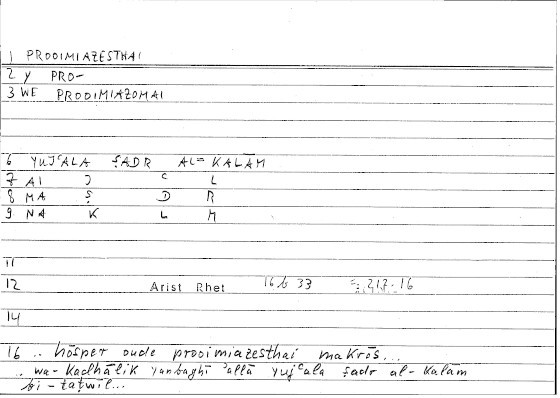 1 PROOIMIAZESTHAI
2 y PRO-
3 WE PROOIMIAZOMAI
6 YUJʿALA ṢADR AL-KALĀM
7 AI J ʿ L
8 MA Ṣ D R
9 NA K L M
11
12 Arist Rhet 16b 33 217.16
14
16 .. hōsper oude prooimiazesthai makrōs...
.. wa-kadhālik yanbaghī ʾallā yujʿala ṣadr al-kalām
bi-taṭwīl...